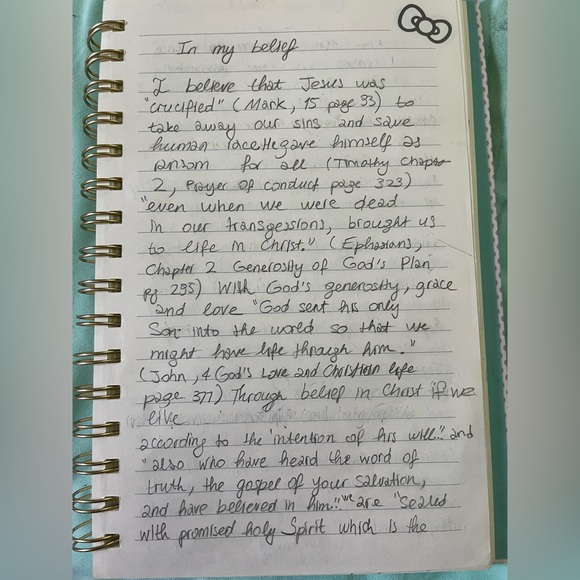 In my belief
I believe that Jesus was
"crucified" (Mark, 15 page 93) to
take away our sins and save
human race. He gave himself as
ransom for all (Timothy Chapter
2, Prayer of conduct page 323)
"even when we were dead
in our transgessions, brought us
to life in Christ." (Ephasians,
Chapter 2 Generosity of God's Plan
pg 295) With God's generosity, grace
and love "God sent his only
Son into the world so that we
might have life through him."
(John, 4 God's Love and Christian life
page 377) Through belief in Christ if we
live
according to the "intention of his will" and
"also who have heard the word of
truth, the gospel of your salvation,
and have believed in him" we are "sealed
with promised holy Spirit which is the